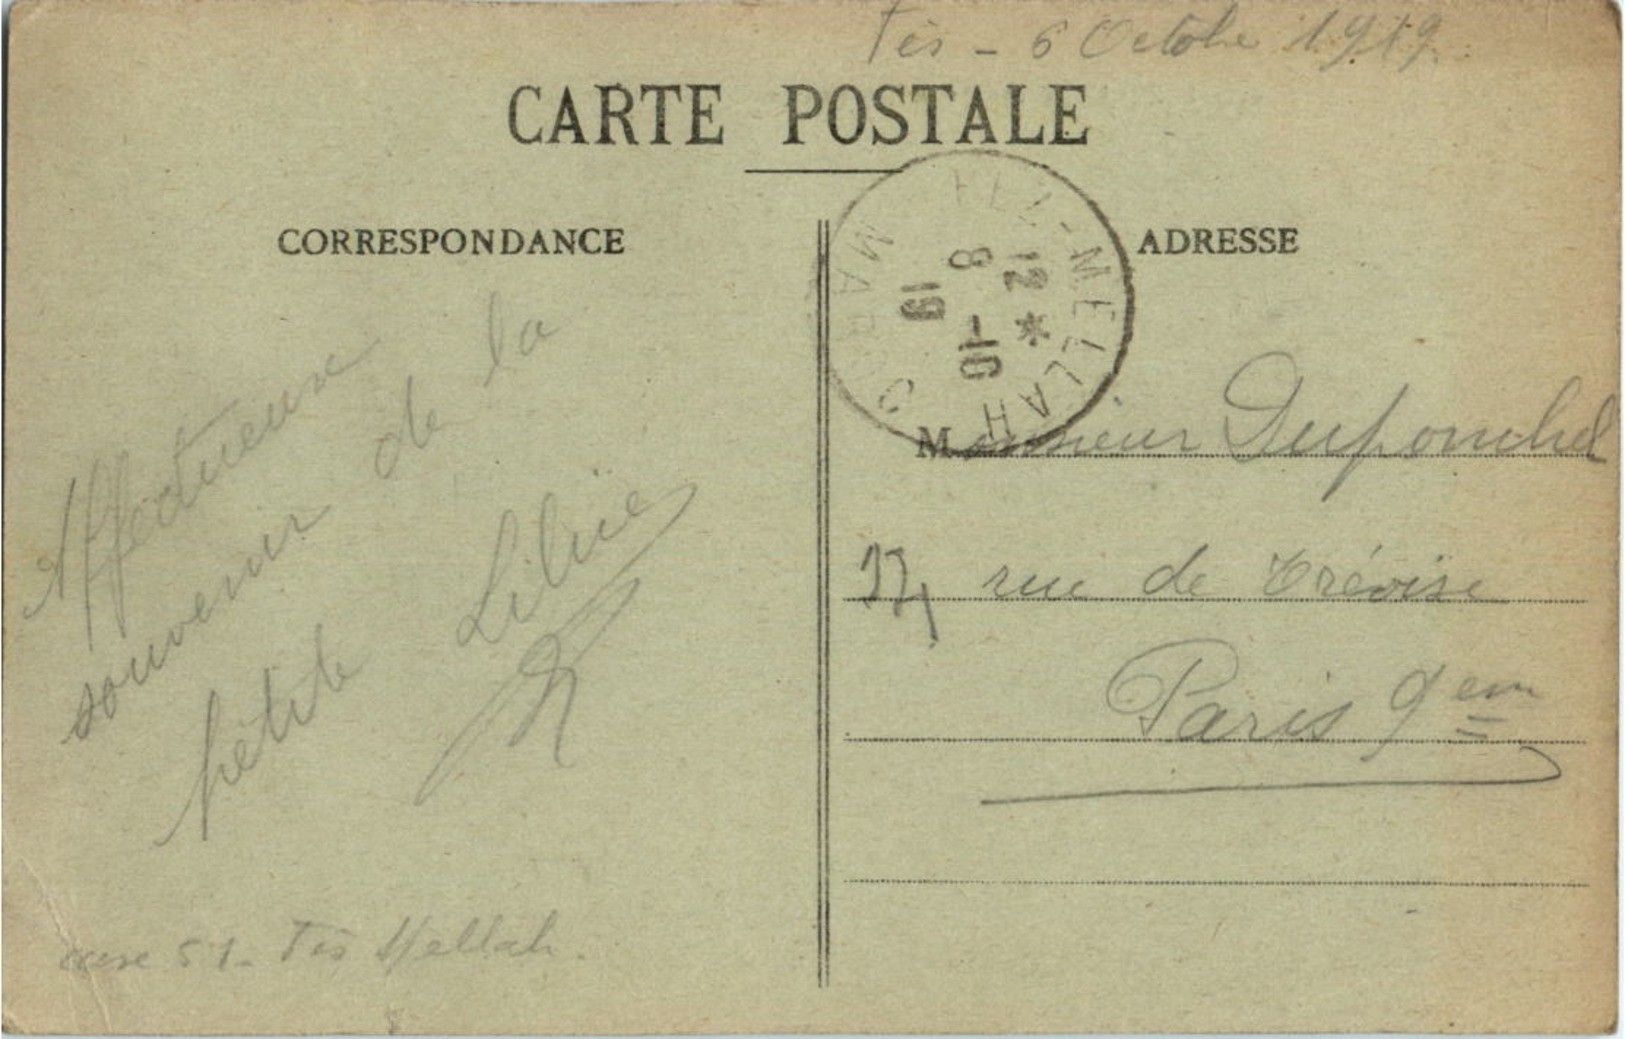 Fès - 6 Octobre 1919.
CARTE POSTALE
CORRESPONDANCE
ADRESSE
FEZ-MELLAH
12 *
8 -10
19
MAROC
Affectueuse
souvenir de la
petite Lilie
case 51 - Fès Mellah.
Monsieur Duponchel
rue de Trévise
Paris 9em